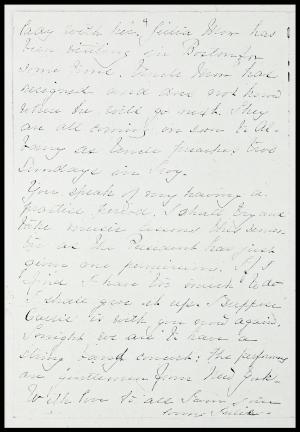 lady with her. Julia Dow has
been visiting in Boston for
some time. Uncle Dow has
resigned and does not know
where he will go next. They
are all coming on soon to Al-
bany as Uncle preaches two
Sundays in Troy.
You speak of my having a
practice period. I shall try and
take music lessons this semes-
ter as the President has just
given me permission. If I
find I have too much to do
I shall give it up. Suppose
Carrie is with you now again.
Tonight we are to have a
string band concert; the performers
are gentlemen from New York.
With love to all I am